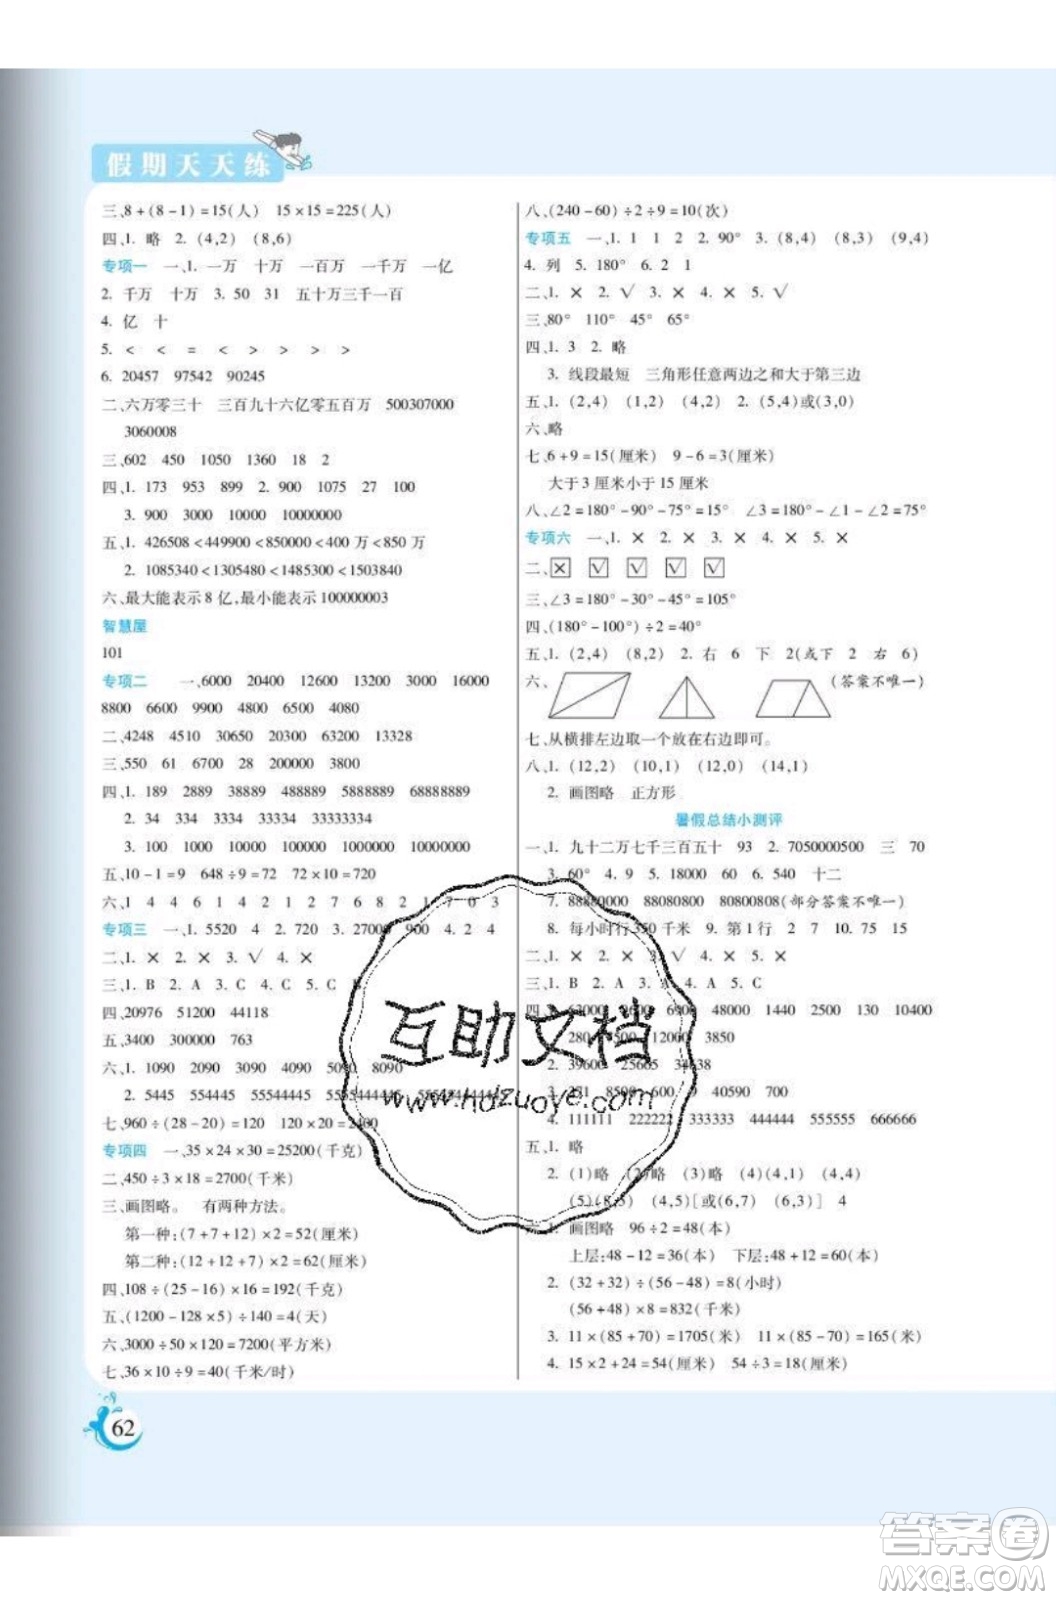 假期天天练
三、8+(8-1)=15(人) 15×15=225(人)
四、1. 略 2. (4,2) (8,6)
专项一 一、1. 一万 十万 一百万 一千万 一亿
2. 千万 十万 3. 50 31 五十万三千一百
4. 亿 十
5. < < = < > > > >
6. 20457 97542 90245
二、六万零三十 三百九十六亿零五百万 500307000
3060008
三、602 450 1050 1360 18 2
四、1. 173 953 899 2. 900 1075 27 100
3. 900 3000 10000 10000000
五、1. 426508<449900<850000<400万<850万
2. 1085340<1305480<1485300<1538450
六、最大能表示8亿,最小能表示100000003
智慧屋
101
专项二 一、6000 20400 12600 13200 3000 16000
8800 6600 9900 4800 6500 4080
二、4248 4510 30650 30210 33200 13328
三、550 61 6700 28 200000 3800
四、1. 189 2889 38889 488889 5888889 68888889
2. 34 334 3334 33334 333334
3. 100 1000 10000 100000 1000000 10000000
五、10-1=9 648÷9=72 72×10=720
六、1 4 4 6 1 4 2 1 2 7 6 8 2 1 7 0 3
专项三 一、1. 5520 4 2. 720 3. 27000 900 4. 2 4
二、1. × 2. × 3. √ 4. ×
三、1. B 2. A 3. C 4. C 5. C
四、20976 51200 44118
五、3400 300000 763
六、1. 1090 2090 3090 4090 5090 8090
2. 5445 554445 55544445 5555444445 555554444445
七、960÷(28-20)=120 120×20=2400
专项四 一、35×24×30=25200(千克)
二、450÷3×18=2700(千米)
三、画图略。 有两种方法。
第一种:(7+7+12)×2=52(厘米)
第二种:(12+12+7)×2=62(厘米)
四、108÷(25-16)×16=192(千克)
五、(1200-128×5)÷140=4(天)
六、3000÷50×120=7200(平方米)
七、36×10÷9=40(千米/时)
62
八、(240-60)÷2÷9=10(次)
专项五 一、1. 1 1 2 2. 90° 3. (8,4) (8,3) (9,4)
4. 列 5. 180° 6. 2 1
二、1. × 2. √ 3. × 4. × 5. √
三、80° 110° 45° 65°
四、1. 3 2. 略
3. 线段最短 三角形任意两边之和大于第三边
五、1. (2,4) (1,2) (4,2) 2. (5,4)或(3,0)
六、略
七、6+9=15(厘米) 9-6=3(厘米)
大于3厘米小于15厘米
八、∠2=180°-90°-75°=15° ∠3=180°-∠1-∠2=75°
专项六 一、1. × 2. × 3. × 4. × 5. ×
二、× √ √ √ √
三、∠3=180°-30°-45°=105°
四、(180°-100°)÷2=40°
五、1. (2,4) (8,2) 2. 右 6 下 2(或下 2 右 6)
六、(答案不唯一)
七、从横排左边取一个放在右边即可。
八、1. (12,2) (10,1) (12,0) (14,1)
2. 画图略 正方形
暑假总结小测评
一、1. 九十二万七千三百五十 93 2. 7050000500 三 70
3. 60° 4. 9 5. 18000 60 6. 540 十二
7. 88880000 88080800 80800808(部分答案不唯一)
8. 每小时行350千米 9. 第1行 2 7 10. 75 15
二、1. × 2. × 3. √ 4. × 5. ×
三、1. B 2. A 3. A 4. A 5. C
四、1. 63000 2600 6600 48000 12000 130 10400
280 500 12000 38
2. 39600 25665 32486
3. 231 8500 600 9 40590 700
4. 111111 222222 333333 444444 555555 666666
五、1. 略
2. (1)略 (2)略 (3)略 (4)(4,1) (4,4)
(5)(8,3) (4,5)[或(6,7) (6,3)] 4
1. 画图略 96÷2=48(本)
上层:48-12=36(本) 下层:48+12=60(本)
2. (32+32)÷(56-48)=8(小时)
(56+48)×8=832(千米)
3. 11×(85+70)=1705(米) 11×(85-70)=165(米)
4. 15×2+24=54(厘米) 54÷3=18(厘米)
互助文档
www.hdzuoye.com
答案卷
MXQE.COM